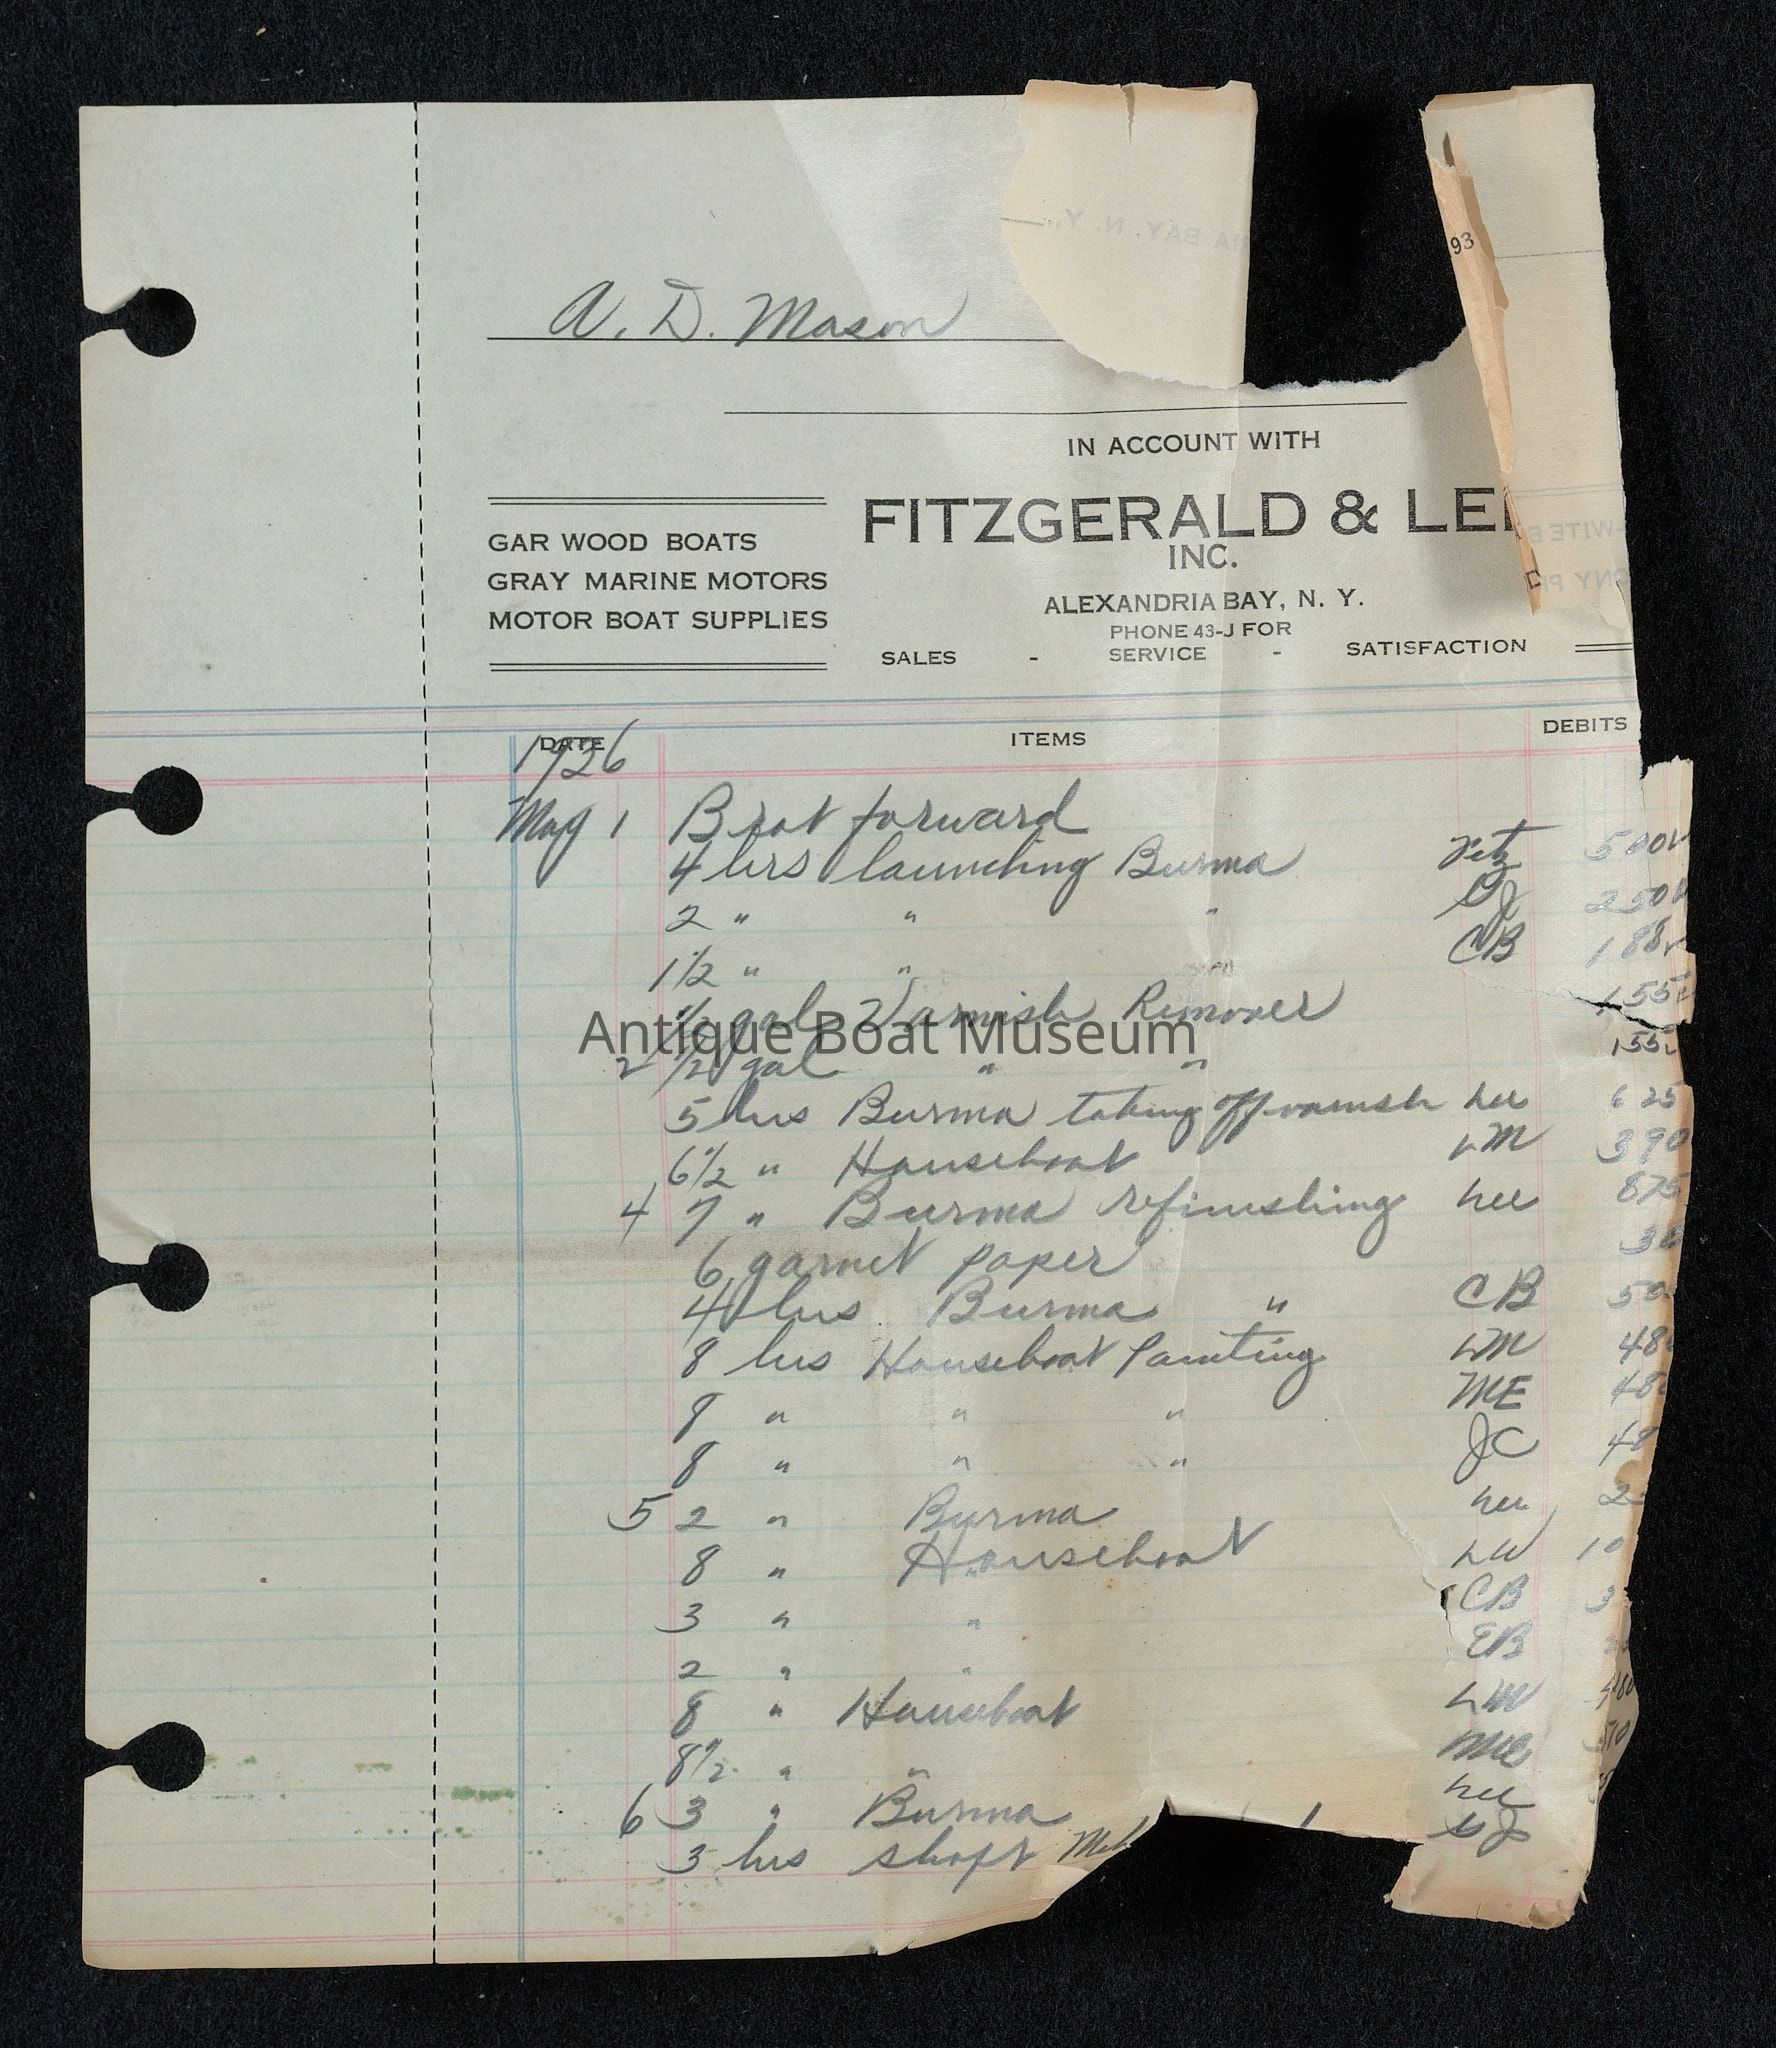 93
A. D. Mason
IN ACCOUNT WITH
FITZGERALD & LE
INC.
GAR WOOD BOATS
GRAY MARINE MOTORS
MOTOR BOAT SUPPLIES
ALEXANDRIA BAY, N. Y.
PHONE 43-J FOR
SALES - SERVICE - SATISFACTION
DATE ITEMS DEBITS
1936
May 1 Brot forward
4 hrs launching Burma Fitz 500
2 " " " GJ 250
1 1/2 " " " CB 188
1/2 gal Varnish Remover 155
Antique Boat Museum
2 1/2 gal " " 155
5 hrs Burma taking off varnish Lee 625
6 1/2 " Houseboat LM 390
4 7 " Burma refinishing Lee 875
6 garnet paper 36
4 hrs Burma " CB 50
8 hrs Houseboat Painting LM 48
8 " " " ME 48
8 " " " JC 48
5 2 " Burma Lee 2
8 " Houseboat LW 10
3 " " CB 3
2 " " EB
8 " Houseboat LM 480
8 1/2 " " ME 510
6 3 " Burma Lee
3 hrs shaft GJ